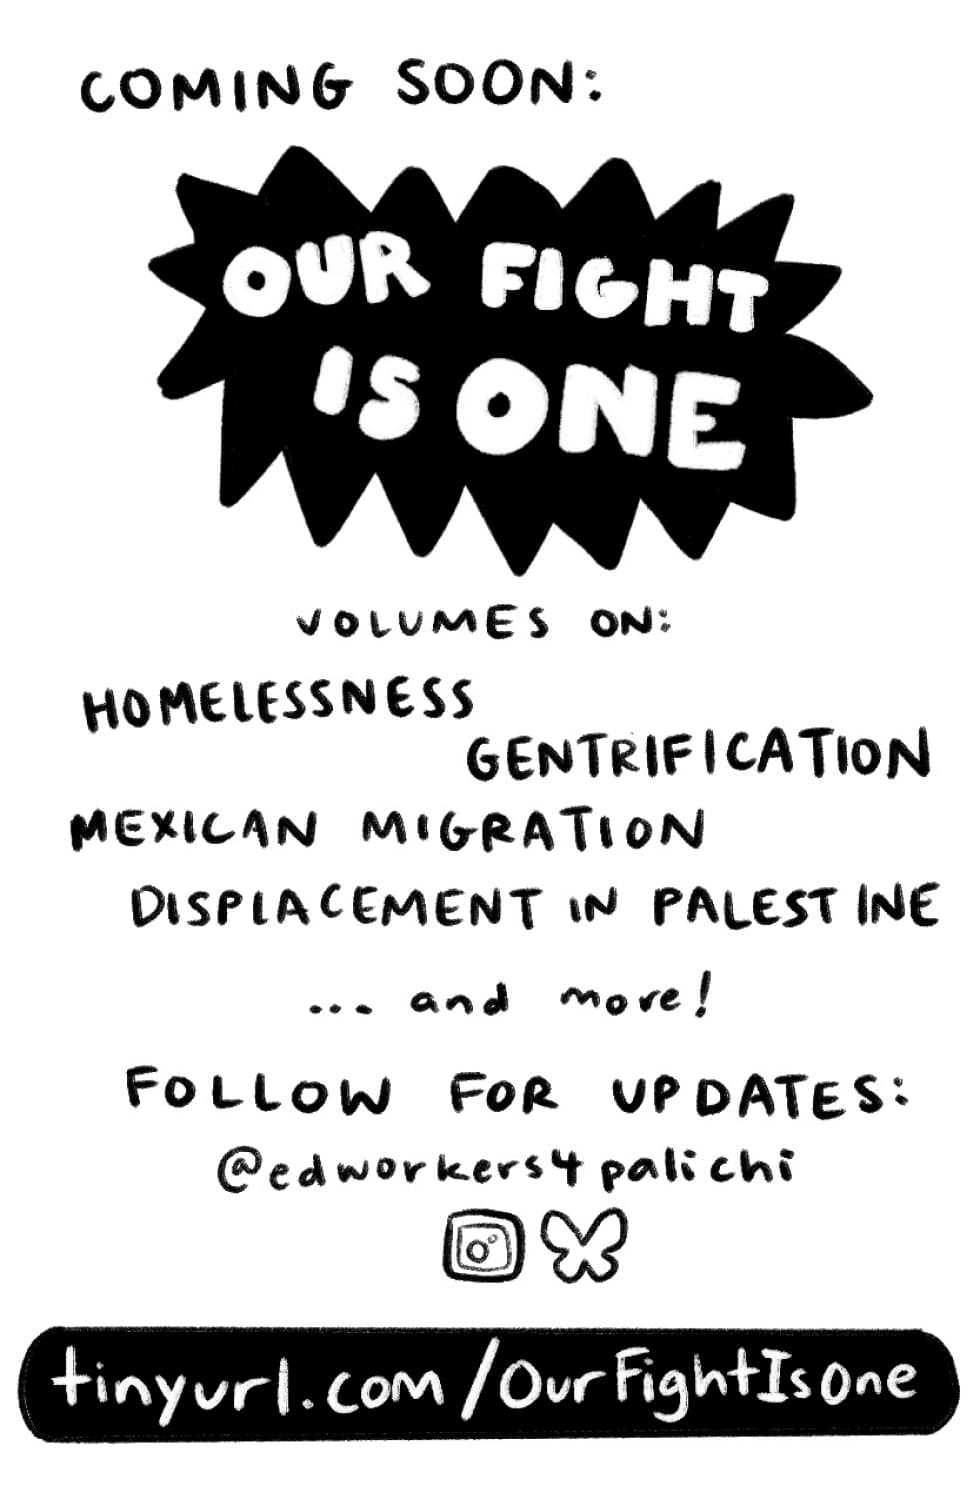 COMING SOON:
OUR FIGHT
IS ONE
VOLUMES ON:
HOMELESSNESS
GENTRIFICATION
MEXICAN MIGRATION
DISPLACEMENT IN PALESTINE
... and more!
FOLLOW FOR UPDATES:
@edworkers4palichi
tinyurl.com/OurFightIsOne